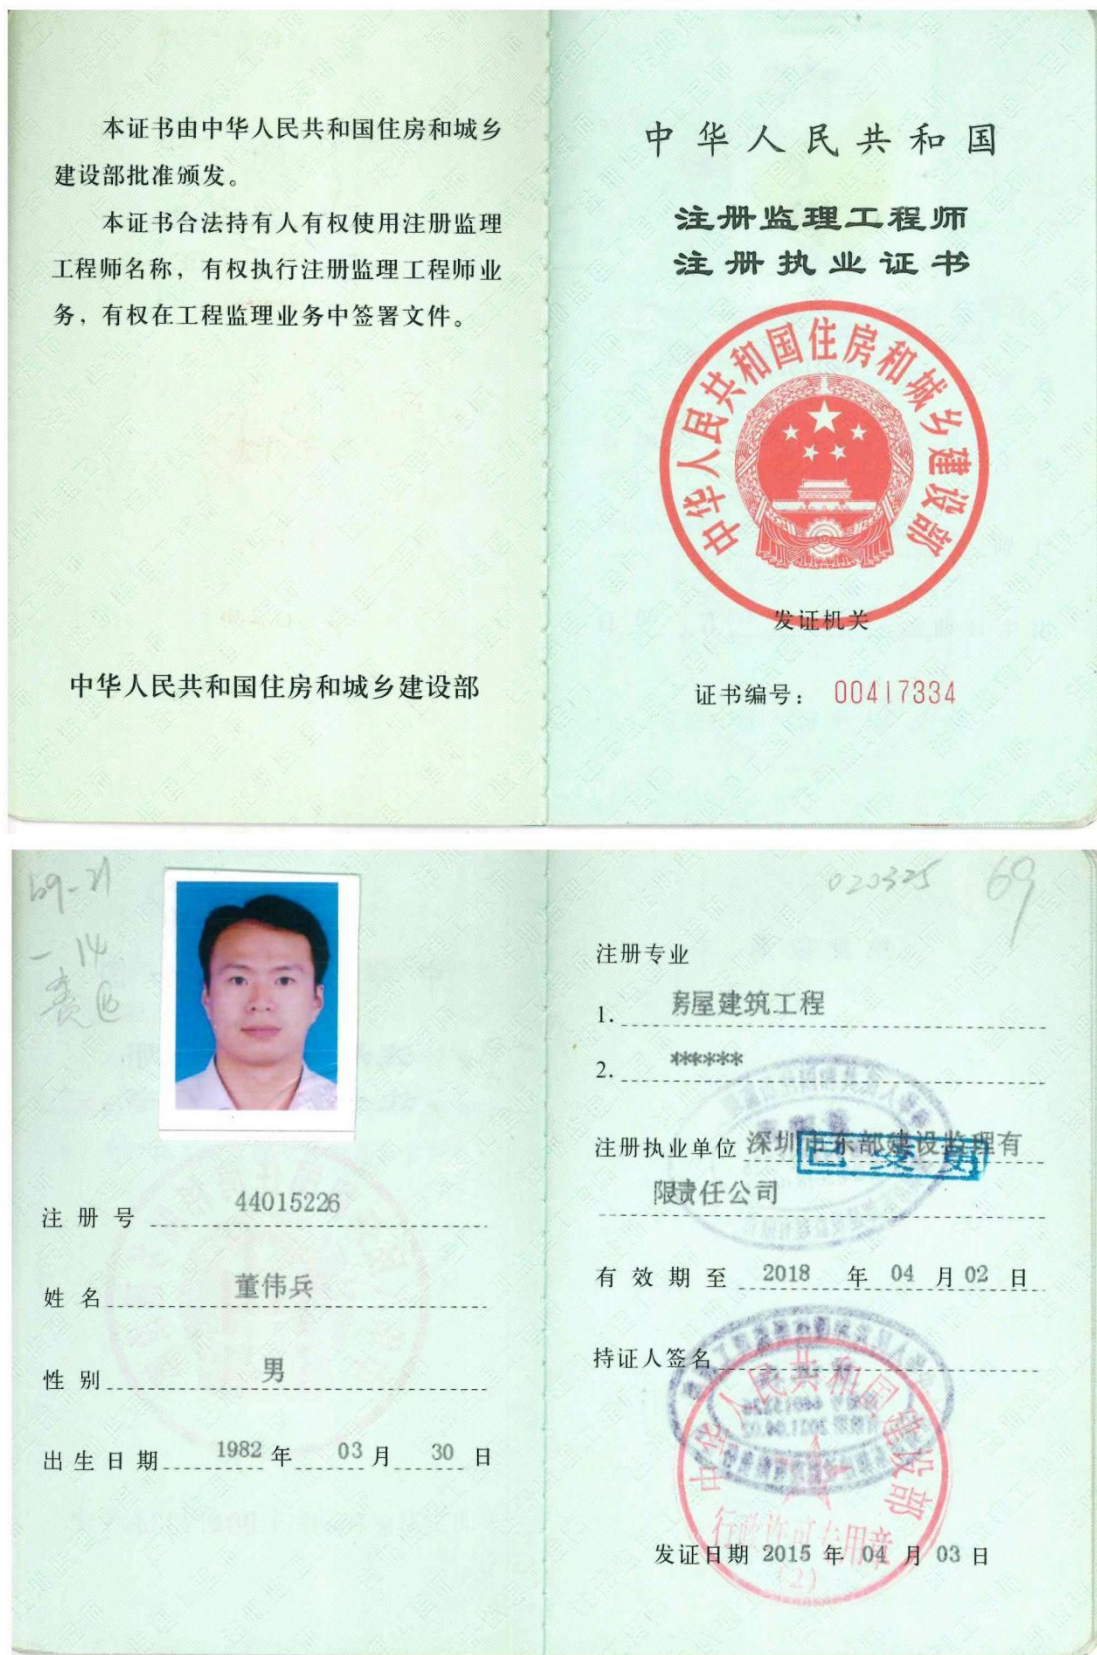 本证书由中华人民共和国住房和城乡
建设部批准颁发。
本证书合法持有人有权使用注册监理
工程师名称，有权执行注册监理工程师业
务，有权在工程监理业务中签署文件。
中华人民共和国住房和城乡建设部
中华人民共和国
注册监理工程师
注册执业证书
中华人民共和国住房和城乡建设部
发证机关
证书编号： 00417334
69-21
-14
注册号 44015226
姓名 董伟兵
性别 男
出生日期 1982 年 03 月 30 日
020325 69
注册专业
1. 房屋建筑工程
2. ******
注册执业单位 深圳市东部建设监理有
限责任公司
已变更
有效期至 2018 年 04 月 02 日
持证人签名
中华人民共和国建设部
行政许可专用章
(2)
发证日期 2015 年 04 月 03 日